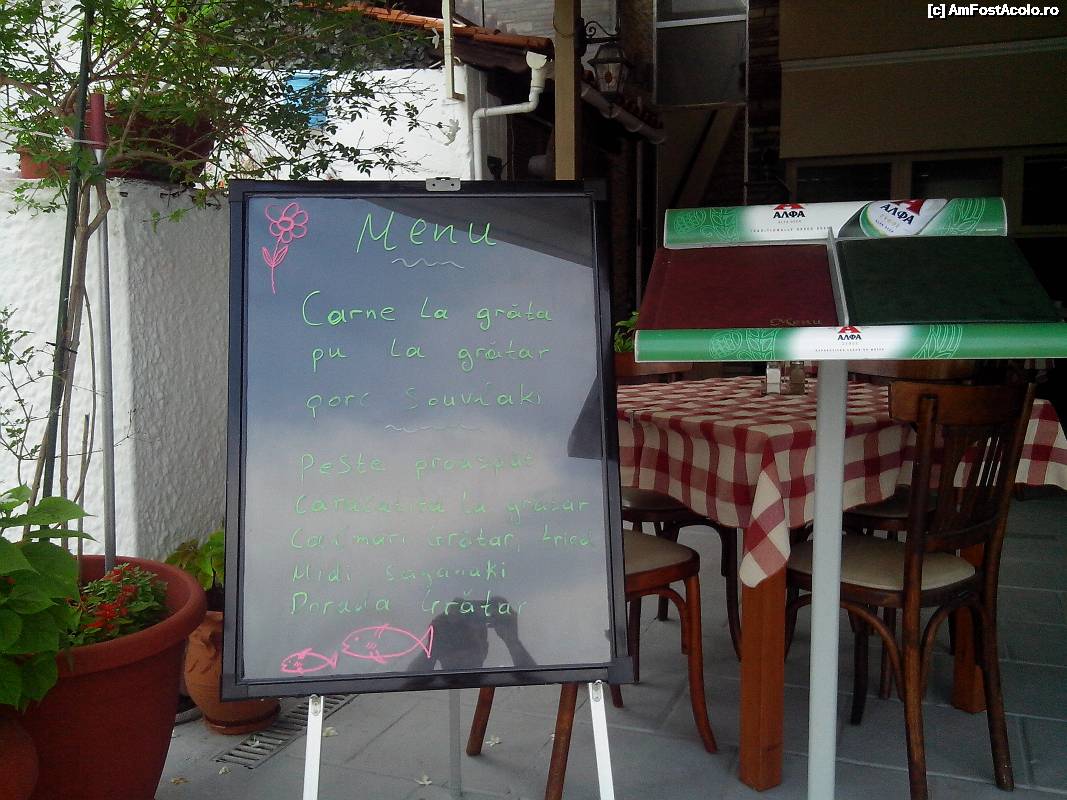 [c] AmFostAcolo.ro
Menu
Carne La grăta
pu La grătar
porc Souvlaki
Peste proaspăt
Caracatita la gratar
Calimari grătar, frica
Midi saganaki
Dorada grătar
ΑΛΦΑ
ΑΛΦΑ
Menu
ΑΛΦΑ